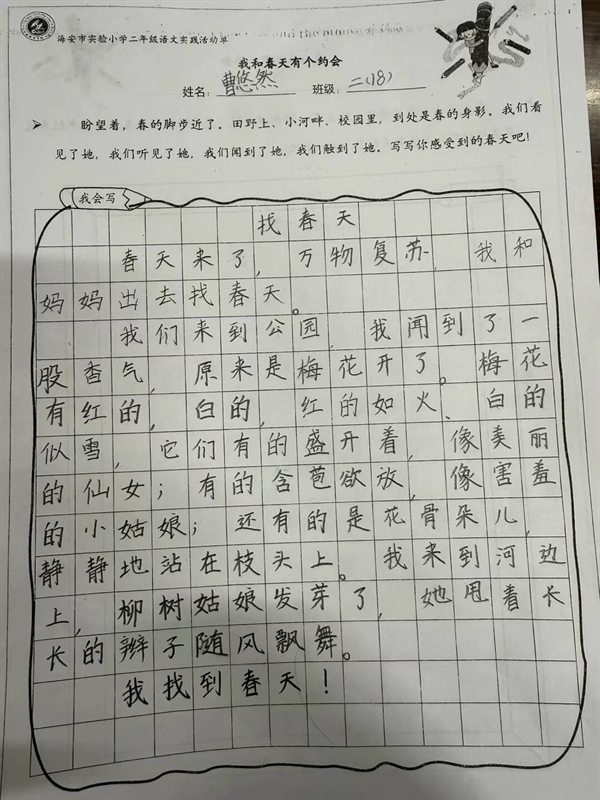 海安市实验小学二年级语文实践活动单
我和春天有个约会
姓名：曹悠然 班级：二(18)
➤ 盼望着，春的脚步近了。田野上、小河畔、校园里，到处是春的身影。我们看
见了她，我们听见了她，我们闻到了她，我们触到了她。写写你感受到的春天吧！
我会写
找春天
春天来了，万物复苏，我和
妈妈出去找春天。
我们来到公园，我闻到了一
股香气，原来是梅花开了。梅花
有红的，白的，红的如火、白的
似雪，它们有的盛开着，像美丽
的仙女；有的含苞欲放，像害羞
的小姑娘；还有的是花骨朵儿，
静静地站在枝头上。我来到河边
上，柳树姑娘发芽了，她甩着长
长的辫子随风飘舞。
我找到春天！